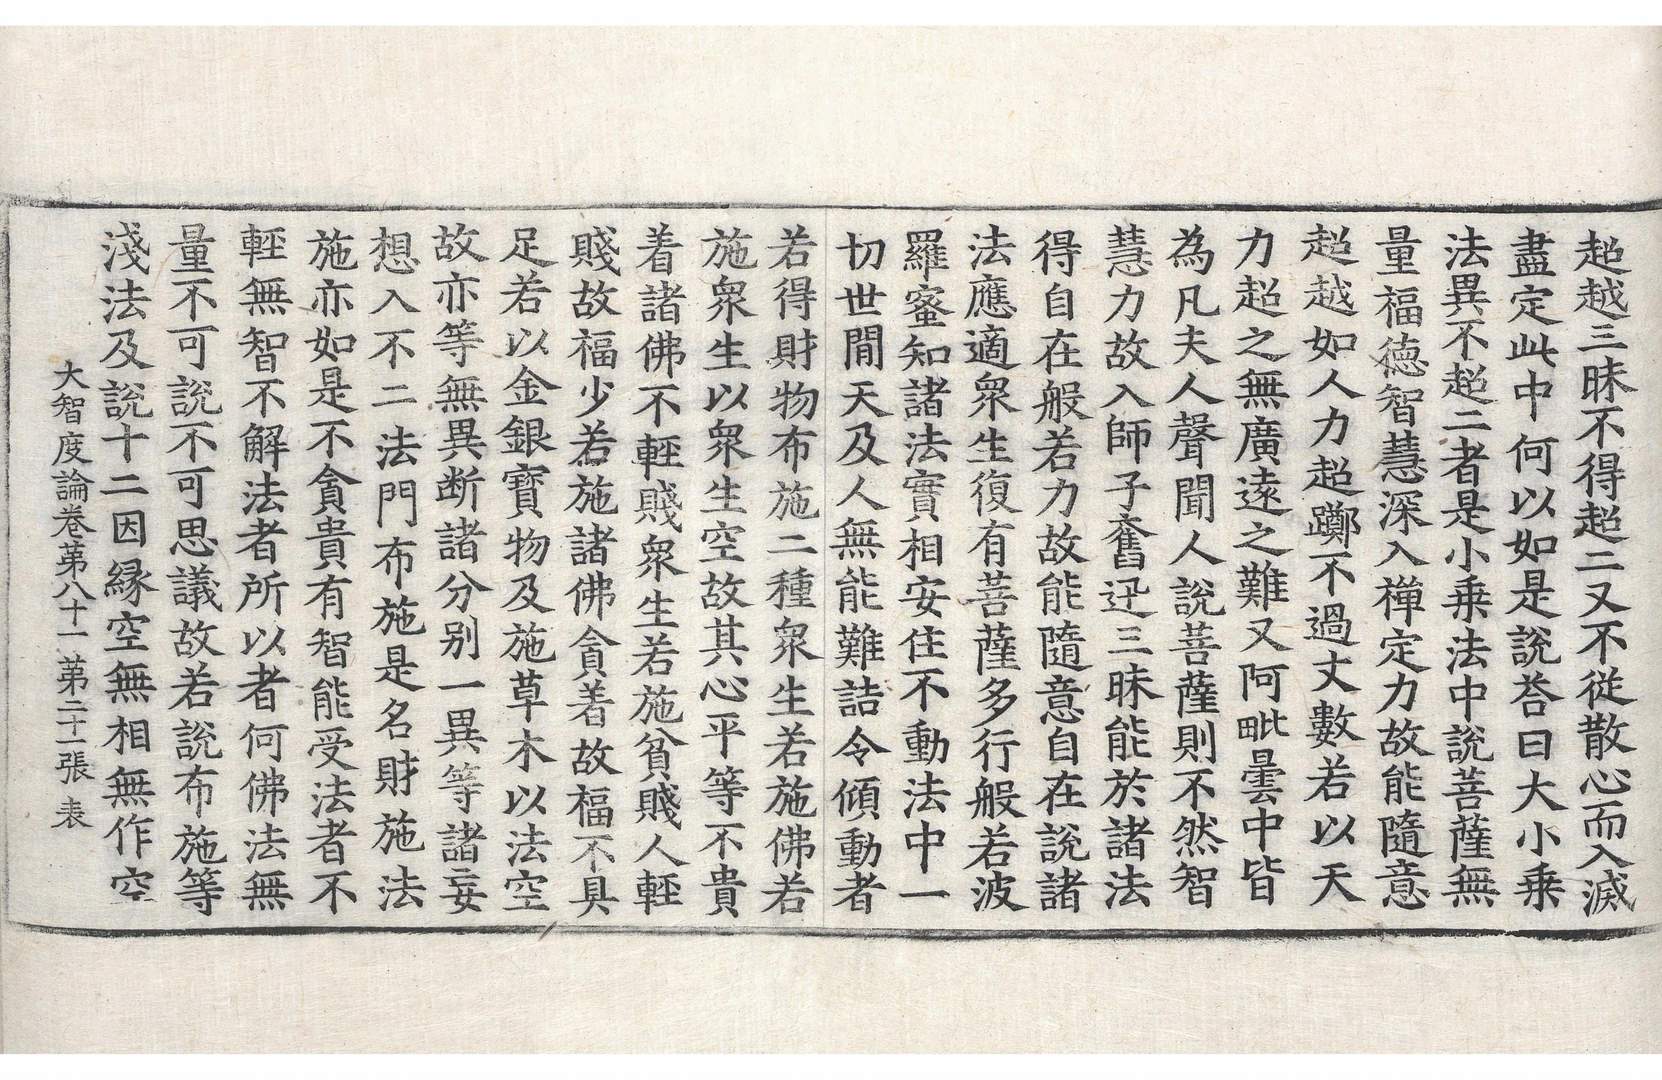 超越三昧不得超二又不從散心而入滅
盡定此中何以如是說荅曰大小乗
法異不超二者是小乗法中說菩薩無
量福德智慧深入禪定力故能隨意
超越如人力超躑不過丈數若以天
力超之無廣遠之難又阿毗曇中皆
為凡夫人聲聞人說菩薩則不然智
慧力故入師子奮迅三昧能於諸法
得自在般若力故能隨意自在說諸
法應適衆生復有菩薩多行般若波
羅蜜知諸法實相安住不動法中一
切世間天及人無能難詰令傾動者
若得財物布施二種衆生若施佛若
施衆生以衆生空故其心平等不貴
着諸佛不輊賤衆生若施貧賤人輊
賤故福少若施諸佛貪着故福不具
足若以金銀寶物及施草木以法空
故亦等無異断諸分別一異等諸妄
想入不二法門布施是名財施法
施亦如是不貪貴有智能受法者不
輊無智不解法者所以者何佛法無
量不可說不可思議故若說布施等
淺法及說十二因緣空無相無作空
大智度論卷第八十一 第二十一張 表